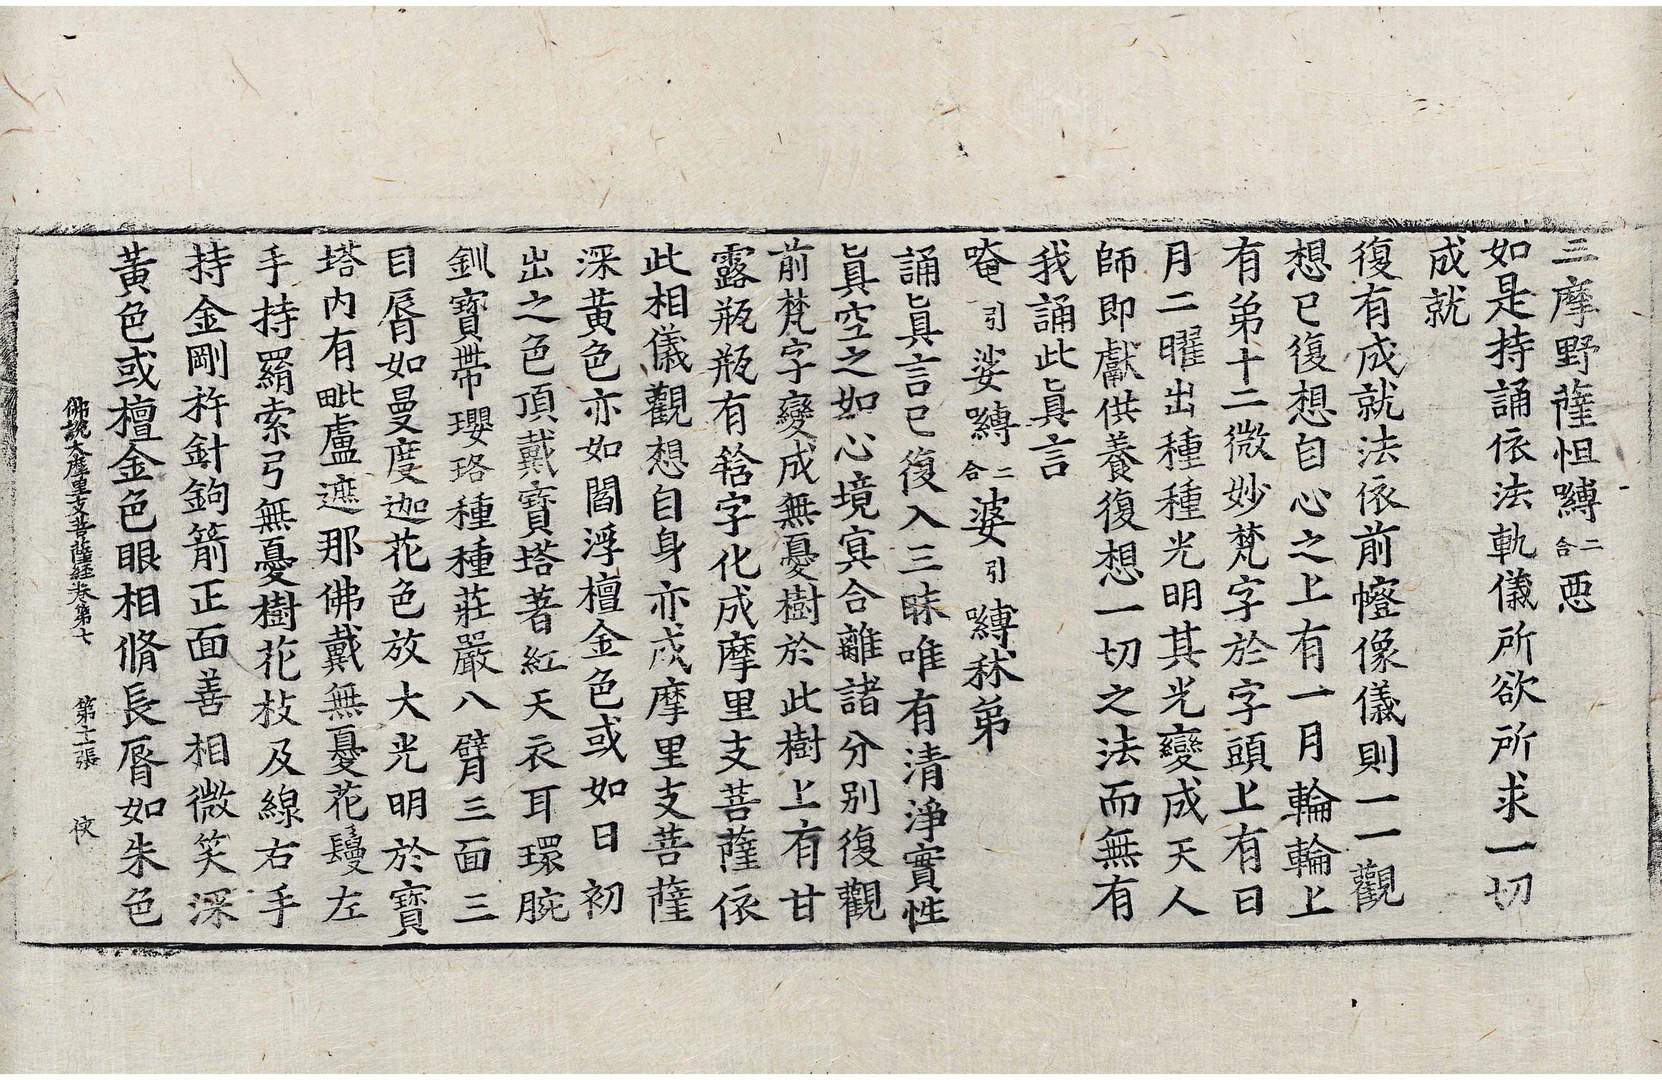 三摩野薩怛嚩二合惡
如是持誦依法軌儀所欲所求一切
成就
復有成就法依前㡧像儀則一一觀
想已復想自心之上有一月輪輪上
有第十二微妙梵字於字頭上有日
月二曜出種種光明其光變成天人
師即獻供養復想一切之法而無有
我誦此眞言
唵引娑嚩二合婆引嚩秫弟
誦眞言已復入三昧唯有清淨實性
眞空之如心境㝠合離諸分別復觀
前梵字變成無憂樹於此樹上有甘
露瓶瓶有唅字化成摩里支菩薩依
此相儀觀想自身亦成摩里支菩薩
深黃色亦如閻浮檀金色或如日初
出之色頂戴寶塔著紅天衣耳環腕
釧寶帶瓔珞種種莊嚴八臂三面三
目脣如曼度迦花色放大光明於寶
塔內有毗盧遮那佛戴無憂花鬘左
手持羂索弓無憂樹花枝及線右手
持金剛杵針鉤箭正面善相微笑深
黃色或檀金色眼相脩長脣如朱色
佛說大摩里支菩薩經卷第七 第十二張 俠